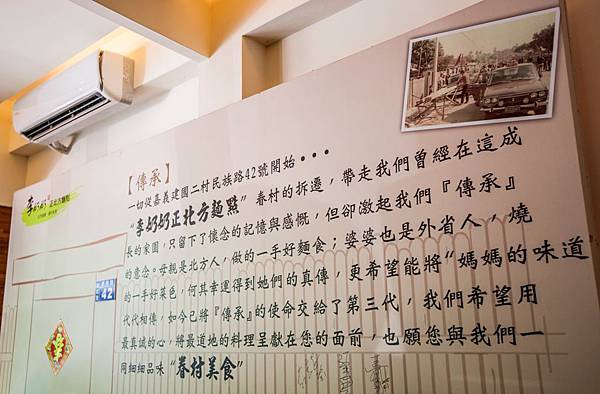 【傳承】
一切從嘉義建國二村民族路42號開始・・・
"李奶奶正北方麵點" 眷村的拆遷，帶走我們曾經在這成
長的家園，只留下了懷念的記憶與感慨，但卻激起我們『傳承』
的意念。母親是北方人，做的一手好麵食；婆婆也是外省人，燒
的一手好菜色，何其幸運得到她們的真傳，更希望能將"媽媽的味道
代代相傳，如今已將『傳承』的使命交給了第三代，我們希望用
最真誠的心，將最道地的料理呈獻在您的面前，也願您與我們一
同細細品味 "眷村美食"
李奶奶
42